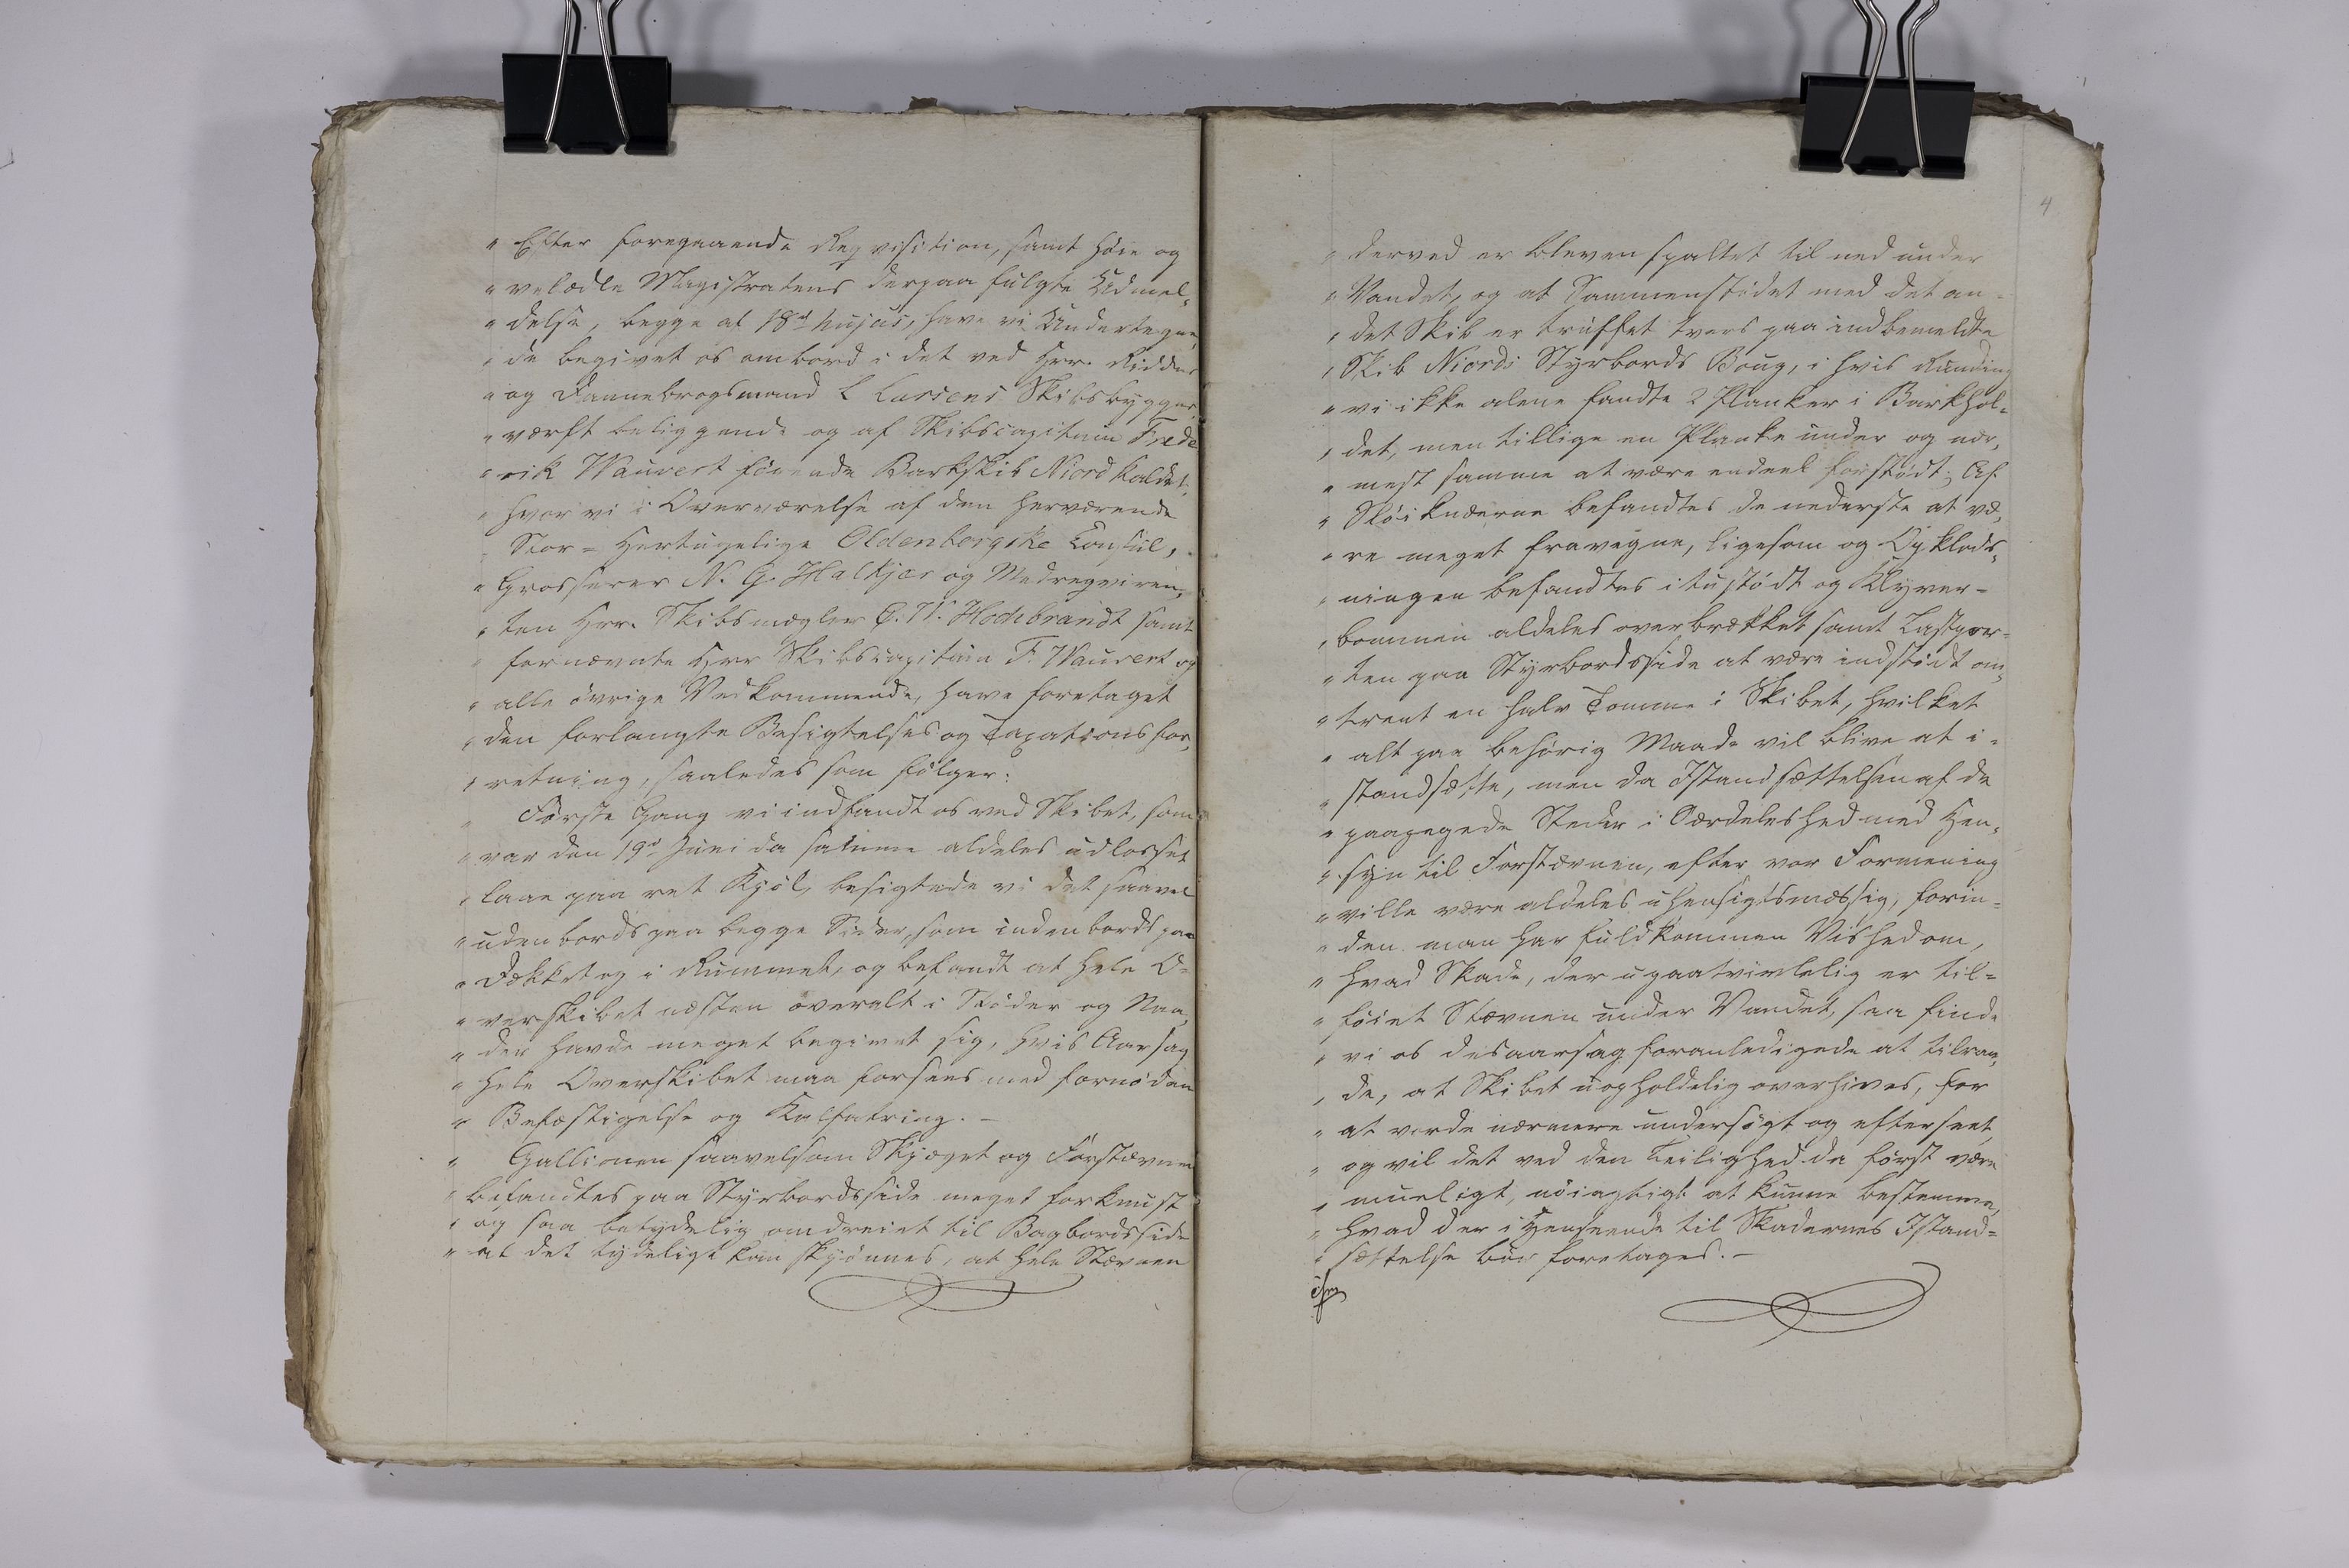 " Efter foregaaende Reqvisition, samt Höie og
" velædle Magistratens derpaa fulgte Udmel-
" delse, begge af 18d hujus, have vi Undertegne-
" de begivet os ombord i det ved Hrr. Ridder
" og Dannebrogsmand L Larsens Skibsbygger-
" værft beliggende og af Skibscapitain Frede
" rik Wauvert förende Barkskib Niord kaldet,
" hvor vi i Overværelse af den herværende
" Stor- Hertugelige Oldenborgske Consul,
" Grosserer N. G. Halkjær og Medreqviren-
" ten Hrr. Skibsmægler C. W. Hochbrandt samt
" fornævnte Hrr Skibscapitain F. Wauvert og
" alle övrige Vedkommende, have foretaget
" den forlangte Besigtelses og Taxationsfor-
" retning, saaledes som fölger:
" Förste Gang vi indfandt os ved Skibet, som
" var den 19d Juni da samme aldeles udlosset
" laae paa ret Kjöl, besigtede vi det saavel
" udenbords paa begge Sider, som indenbords paa
" Dækket og i Rummet, og befandt at hele O-
" verskibet næsten overalt i Stöder og Naa-
" der havde meget begivet sig, hvis Aarsag
" hele Overskibet maa forsees med fornöden
" Befæstigelse og Kalfatring. –
" Gallionen saavelsom Skjæget og Forstævnen
" befandtes paa Styrbordsside meget forknust
" og saa betydelig omdreiet til Bagbordsside
" at det tydeligt kan skjönnes, at hele Stævnen
4
" derved er bleven spaltet til ned under
" Vandet, og at Sammenstödet med det an-
" det Skib er truffet tvers paa indbemeldte
" Skib Niords Styrbords Boug, i hvis Runding
" vi ikke alene fandte 2 Planker i Barkhol-
" det, men tillige en Planke under og nær-
" mest samme at være endeel forstödt; Af
" Slöiknæerne befandtes de nederste at væ-
" re meget fravegne, ligesom og Opklods-
" ningen befandtes itustödt og Klyver-
" bommen aldeles overbrækket samt Lastpor-
" ten paa Styrbordsside at være indstödt om-
" trent en halv Tomme i Skibet, hvilket
" alt paa behörig Maade vil blive at i-
" standsætte, men da Istandsættelsen af de
" paapegede Steder i Særdeleshed med Hen-
" syn til Forstævnen, efter vor Formening
" ville være aldeles uhensigtsmæssig, forin-
" den man har fuldkommen Vished om,
" hvad Skade, der upaatvivlelig er til-
" föiet Stævnen under Vandet, saa finde
" vi os desaarsag foranledigede at tilraa-
" de, at Skibet uopholdelig overhives, for
" at vorde nærmere undersögt og efterseet,
" og vil det ved den Leilighed da först være
" mueligt, nöiagtigt at kunne bestemme,
" hvad der i Henseende til Skadernes Istand-
" sættelse bör foretages. –